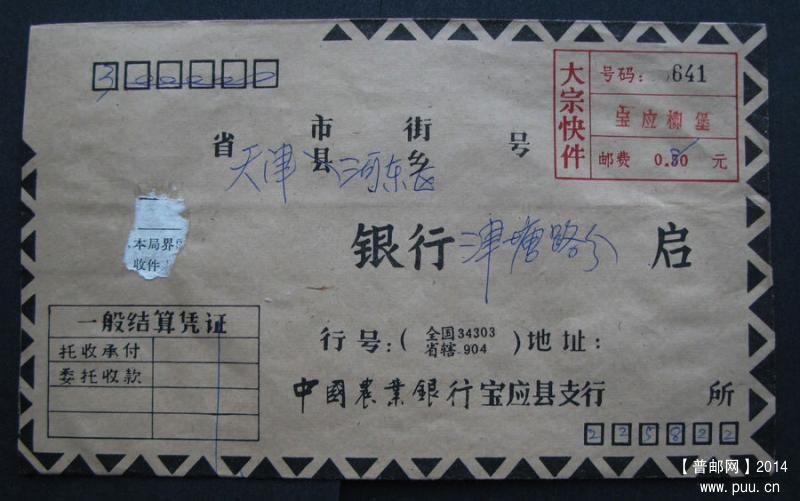 300000
大宗快件
号码: 641
宝应柳堡
邮费 0.80 元
省 市 县 街 乡 号
天津 河东区
银行 津塘路分 启
本局界
收件
一般结算凭证
托收承付
委托收款
行号:(全国34303 省辖-904)地址:
中國農業銀行宝应县支行 所
225822
【普邮网】2014
www.puu.cn